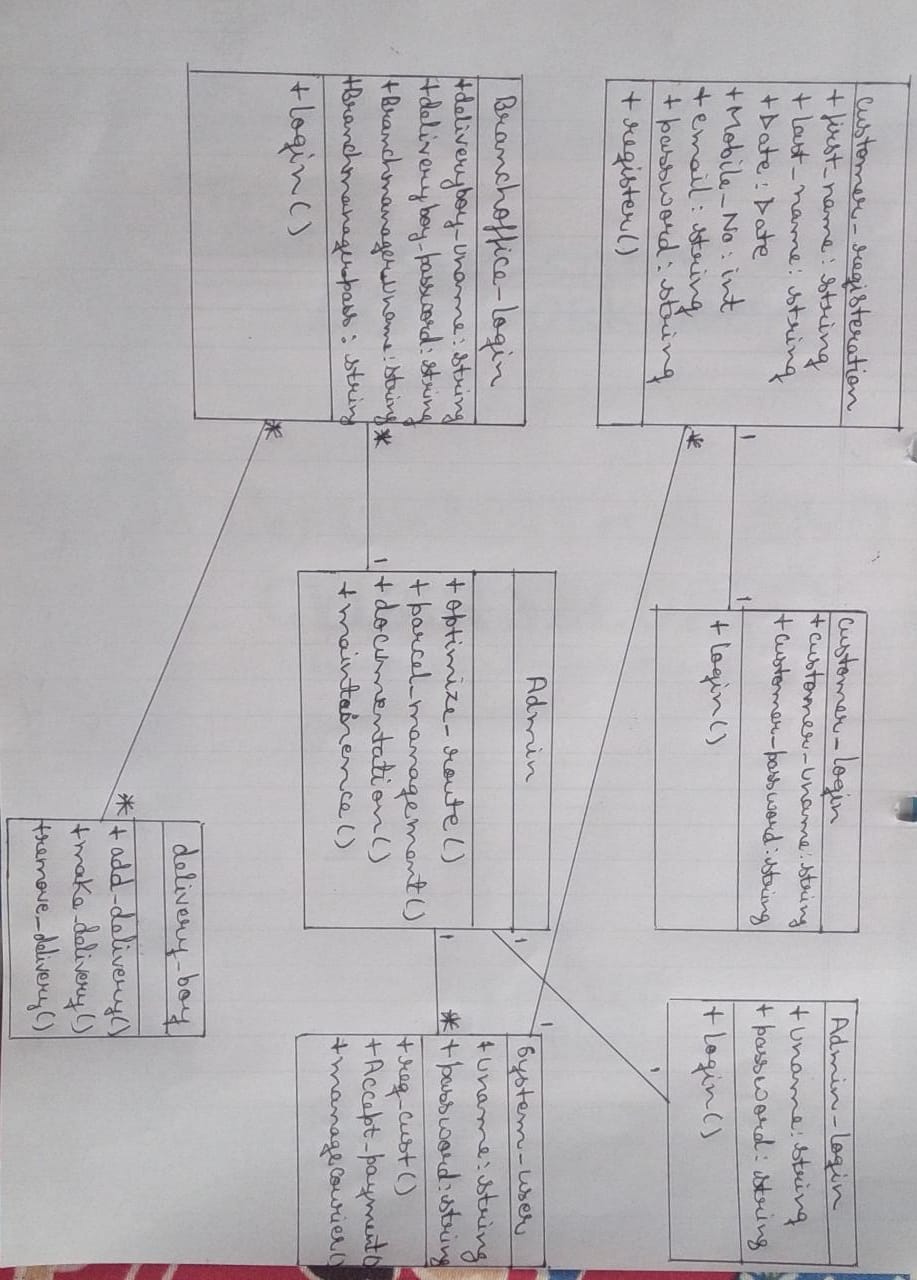 customer_registeration
+ first_name: string
+ last_name: string
+ Date: Date
+ Mobile_No: int
+ email: string
+ password: string
+ register()
1
1
*
customer_login
+ customer_uname: string
+ customer_password: string
+ login()
Admin_login
+ uname: string
+ password: string
+ login()
1
Branchoffice_login
+deliveryboy_uname: string
+deliveryboy_password: string
+Branchmanager_uname: string
+Branchmanagerpass: string
+ login()
*
1
*
Admin
+ optimize_route()
+ parcel_management()
+ documentation()
+ maintainence()
1
1
1
*
System_user
+ uname: string
+ password: string
+ reg_cust()
+ Accept_payment()
+ managecourier()
delivery_boy
*
+ add_delivery()
+ make_delivery()
+remove_delivery()